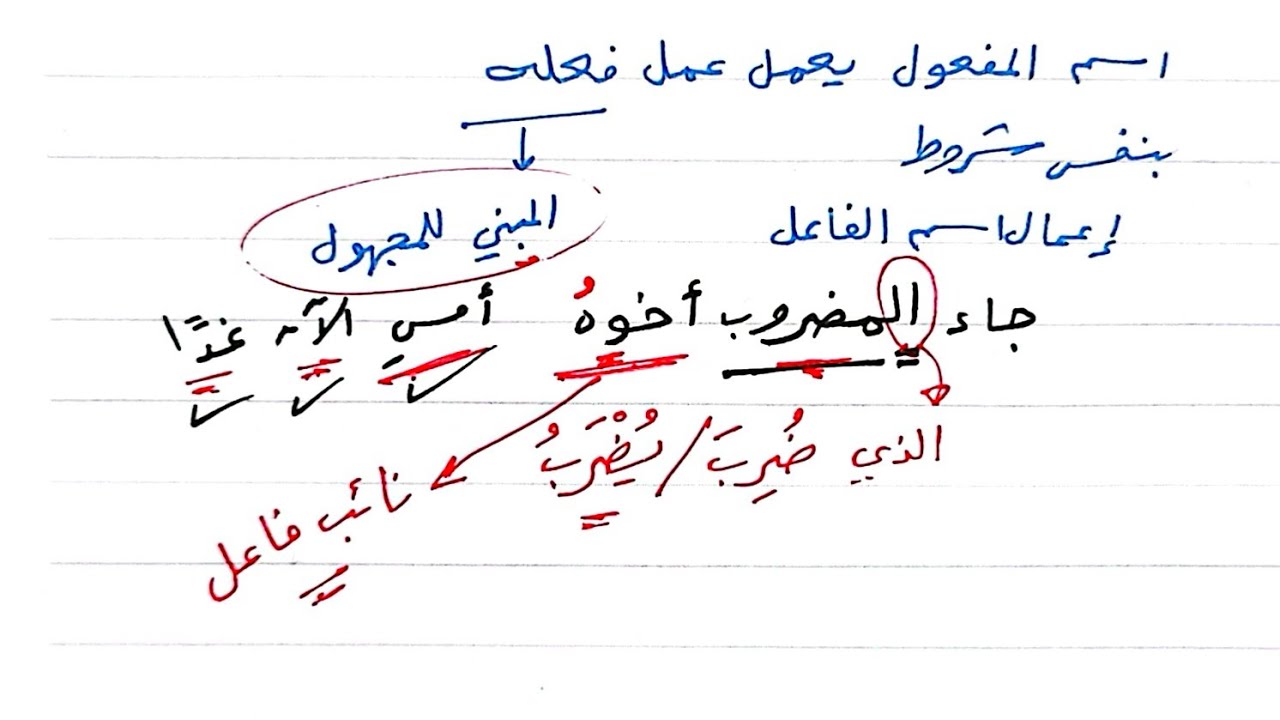 اسم المفعول يعمل عمل فعله
بنفس شروط
إعمال اسم الفاعل
المبني للمجهول
جاء المضروب أخوهُ أمسِ الآن غدًا
الذي ضُرِبَ / يُضْرَبُ
نائب فاعل